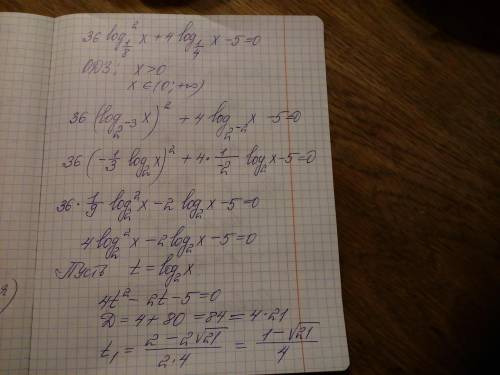 36 log²_{1/8} x + 4 log_{1/4} x - 5 = 0
ОДЗ: x > 0
x ∈ (0; +∞)
36 (log_{2^{-3}} x)² + 4 log_{2^{-2}} x - 5 = 0
36 (-1/3 log_2 x)² + 4 · 1/-2 log_2 x - 5 = 0
36 · 1/9 log_2² x - 2 log_2 x - 5 = 0
4 log_2² x - 2 log_2 x - 5 = 0
Пусть t = log_2 x
4t² - 2t - 5 = 0
D = 4 + 80 = 84 = 4 · 21
t_1 = (2 - 2√21)/(2 · 4) = (1 - √21)/4